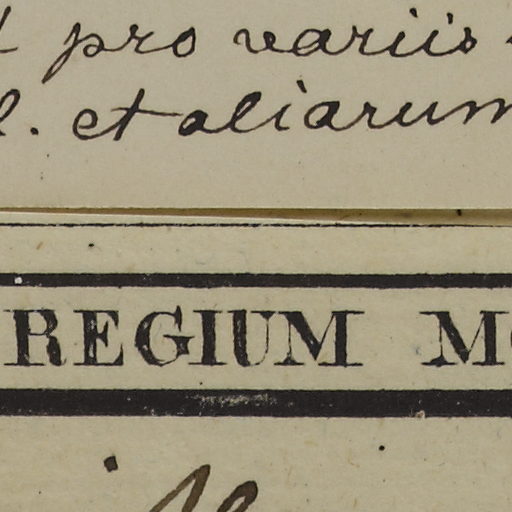 pro variis
et aliarum
REGIUM